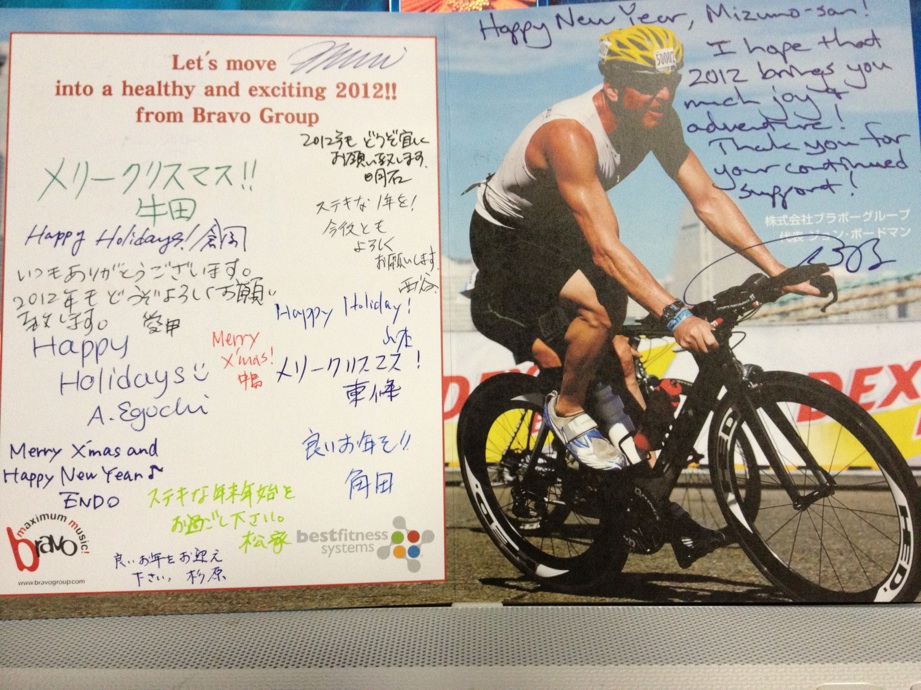 Let's move
into a healthy and exciting 2012!!
from Bravo Group
2012年も どうぞ宜しく
お願い致します
明石
メリークリスマス!!
牛田
ステキな1年を!
今後とも
よろしく
お願いします
西谷
Happy Holidays!
いつもありがとうございます。
2012年もどうぞよろしくお願い
致します。
愛甲
Happy Holiday!
Happy
Holidays
A. Eguchi
Merry
X'mas!
中島
メリークリスマス!
Merry X'mas and
Happy New Year♪
ENDO
良いお年を!!
角田
ステキな年末年始を
お過ごし下さい。
松家
良いお年をお迎え
下さい。杉原
maximum music!
bravo
www.bravogroup.com
bestfitness
systems
Happy New Year, Mizuno-san!
I hope that
2012 brings you
much joy &
adventure!
Thank you for
your continued
support!
株式会社ブラボーグループ
代表 ジョン・ボードマン
DEX
DEX
HED.